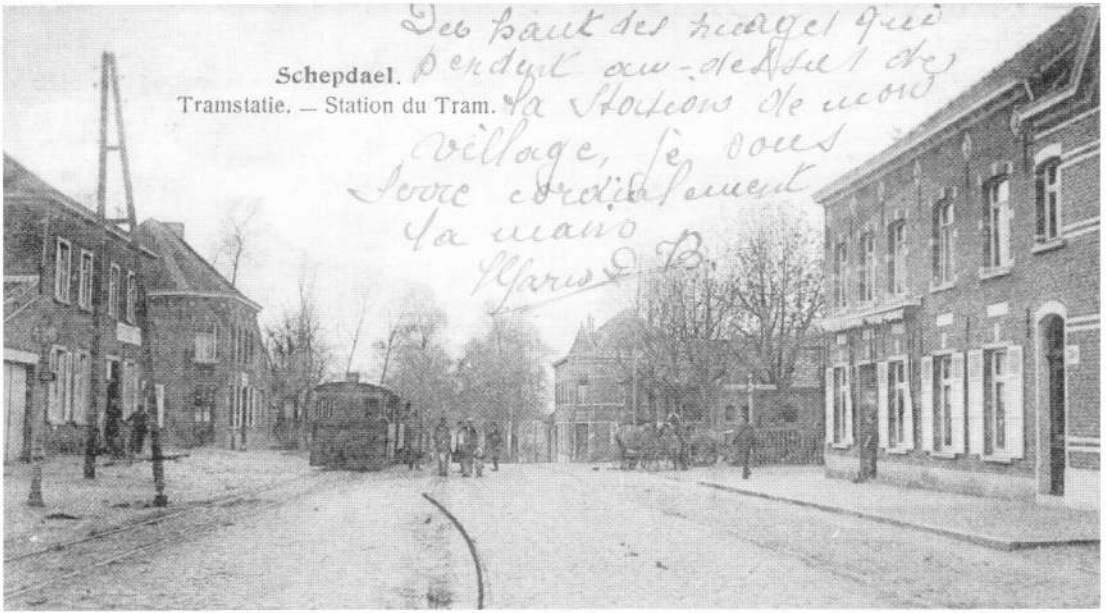 Schepdael.
Tramstatie. — Station du Tram.
Du haut des nuages qui
pendent au-dessus de
la Station de mon
village, je vous
serre cordialement
la main